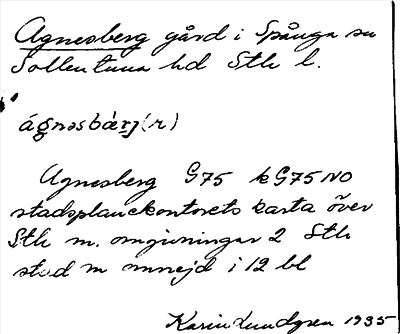 Agnesberg gård i Spånga sn
Sollentuna hd Sthl l.
ágnəsbærj(r)
Agnesberg G75 k G75 NO
stadsplanekontorets karta över
Sthl m. omgivningar 2 Sthl
stad m omnejd i 12 bl
Karin Lundgren 1935